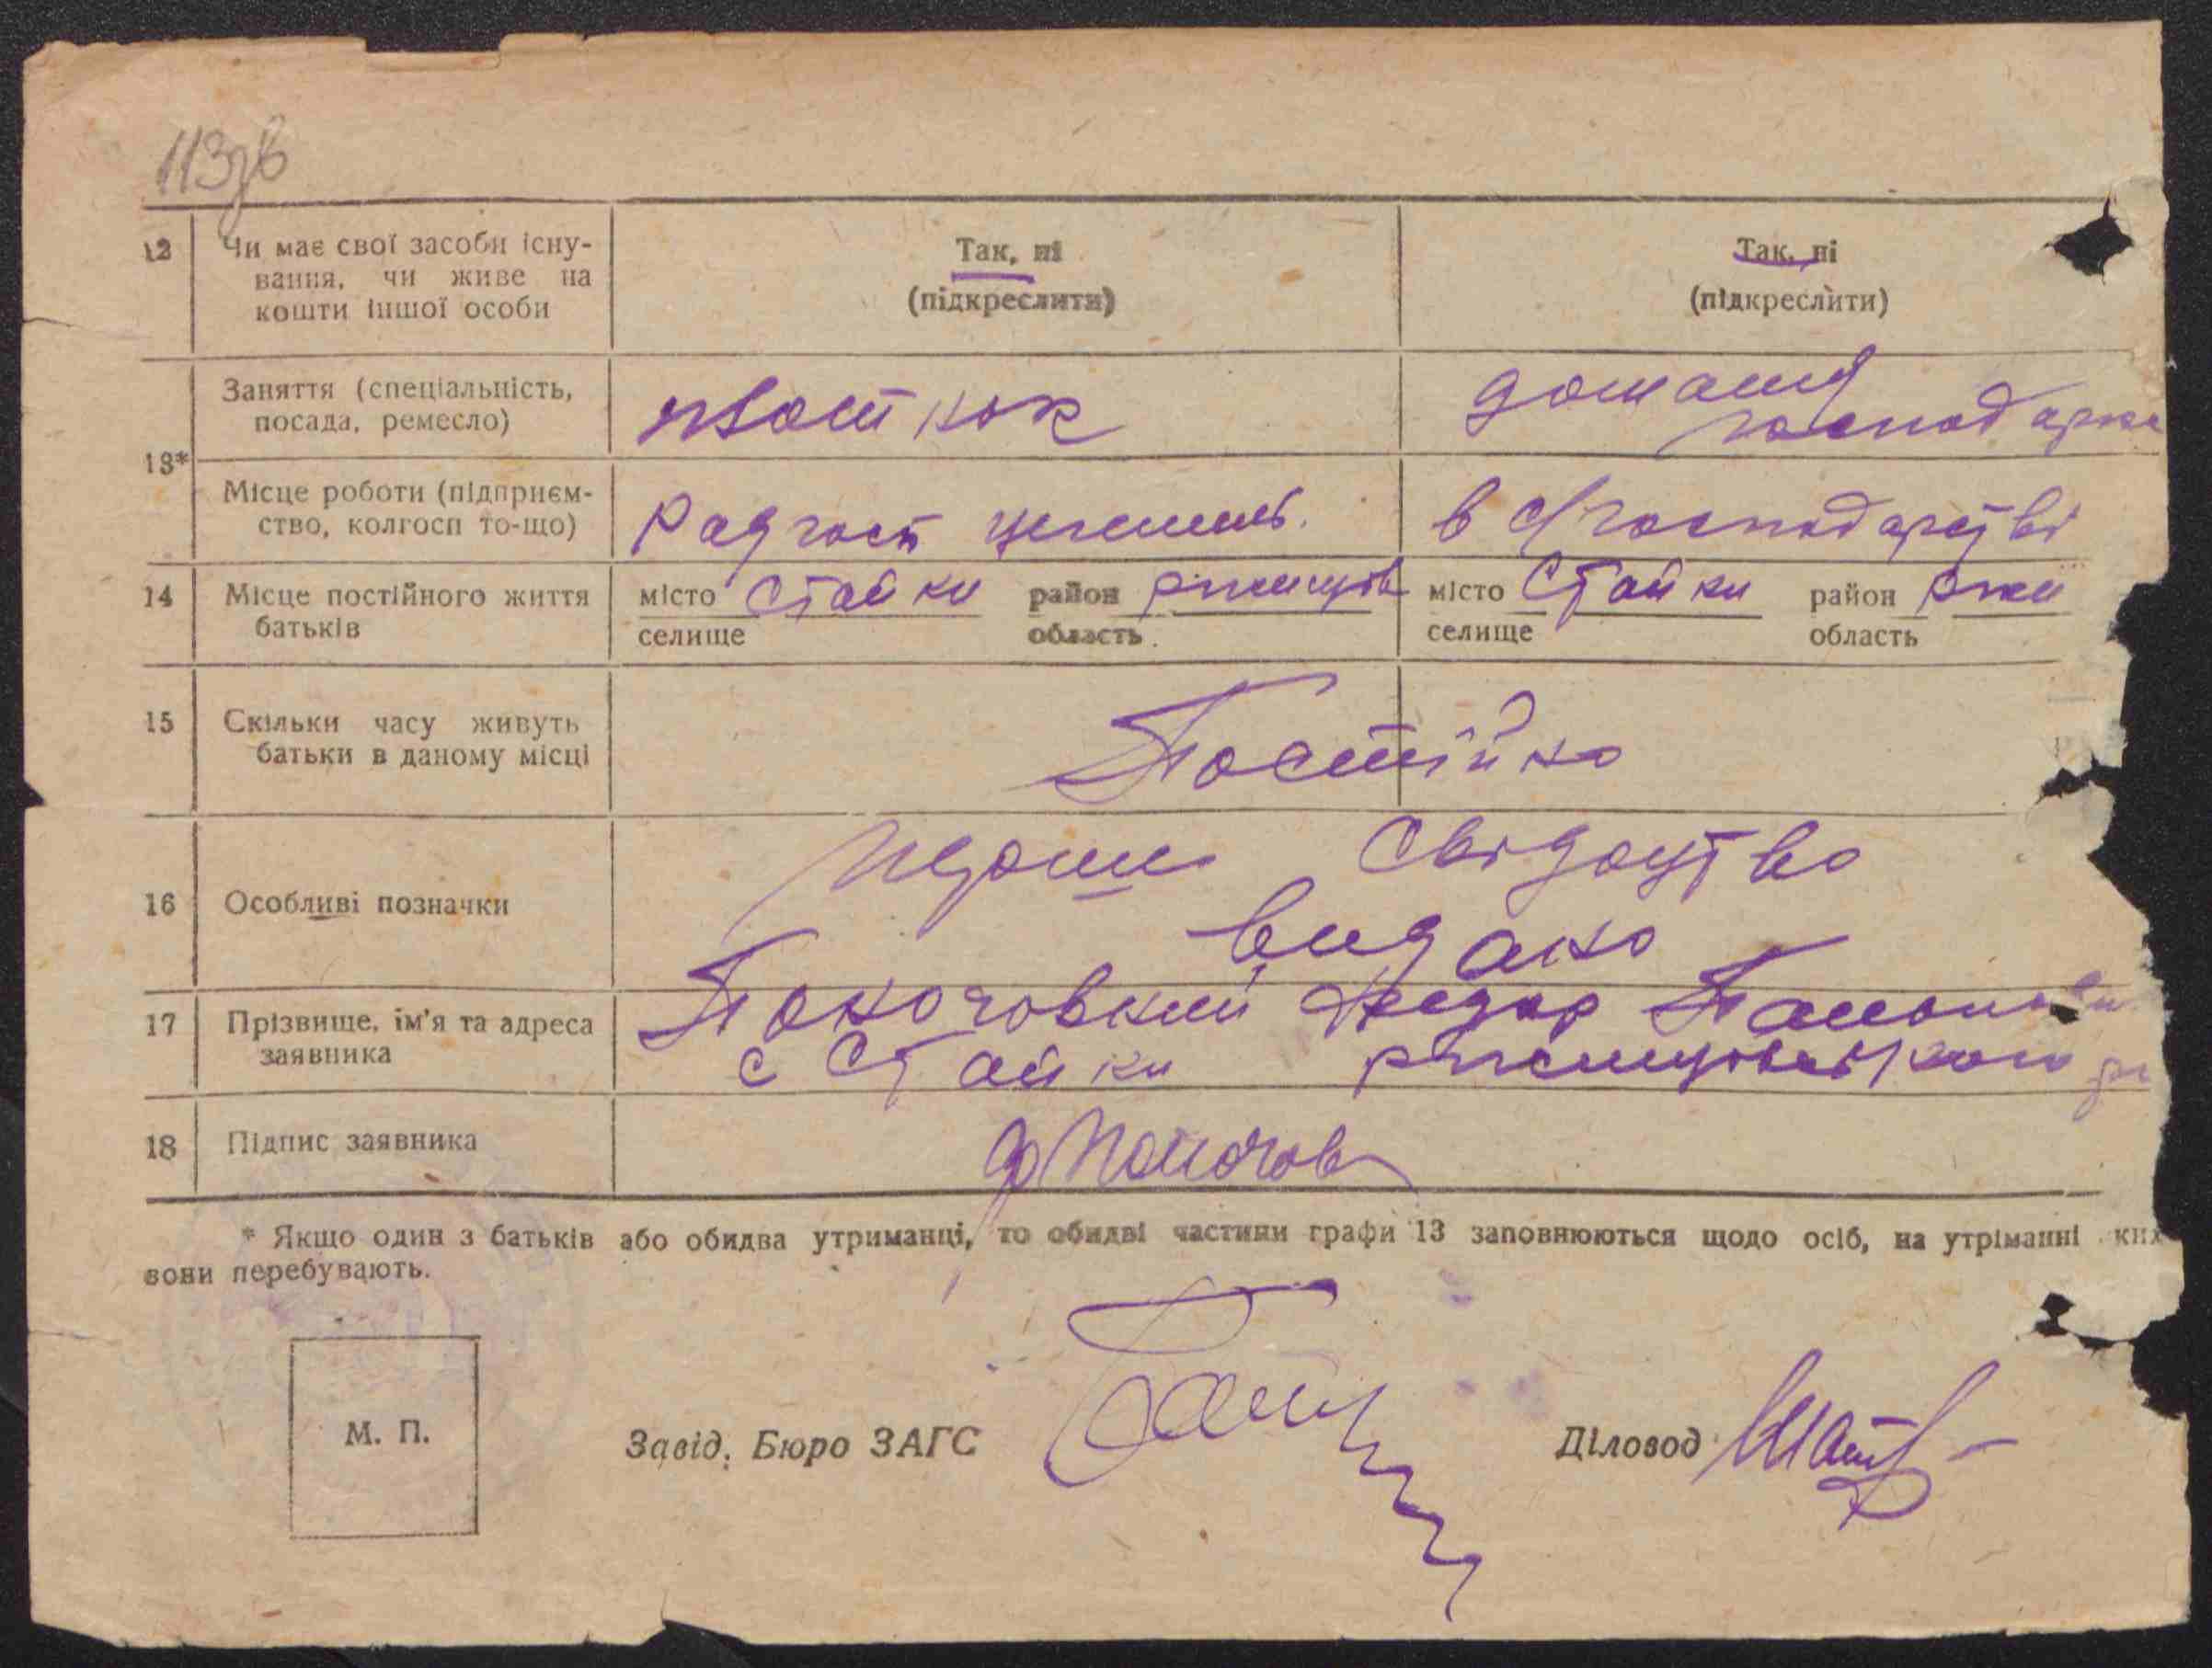 113зв
12 Чи має свої засоби існу-
вання, чи живе на
кошти іншої особи
Так, ні
(підкреслити)
Так, ні
(підкреслити)
13*
Заняття (спеціальність,
посада, ремесло)
домашня
господарка
Місце роботи (підприєм-
ство, колгосп то-що)
Радгосп
в с/господарстві
14 Місце постійного життя
батьків
місто Стайки район Ржищів
селище область
місто Стайки район Ржи
селище область
15 Скільки часу живуть
батьки в даному місці
Постійно
16 Особливі позначки
свідоцтво
видано
17 Прізвище, ім'я та адреса
заявника
с Стайки
18 Підпис заявника
* Якщо один з батьків або обидва утриманці, то обидві частини графи 13 заповнюються щодо осіб, на утріманні ких
вони перебувають.
М. П.
Завід. Бюро ЗАГС
Діловод